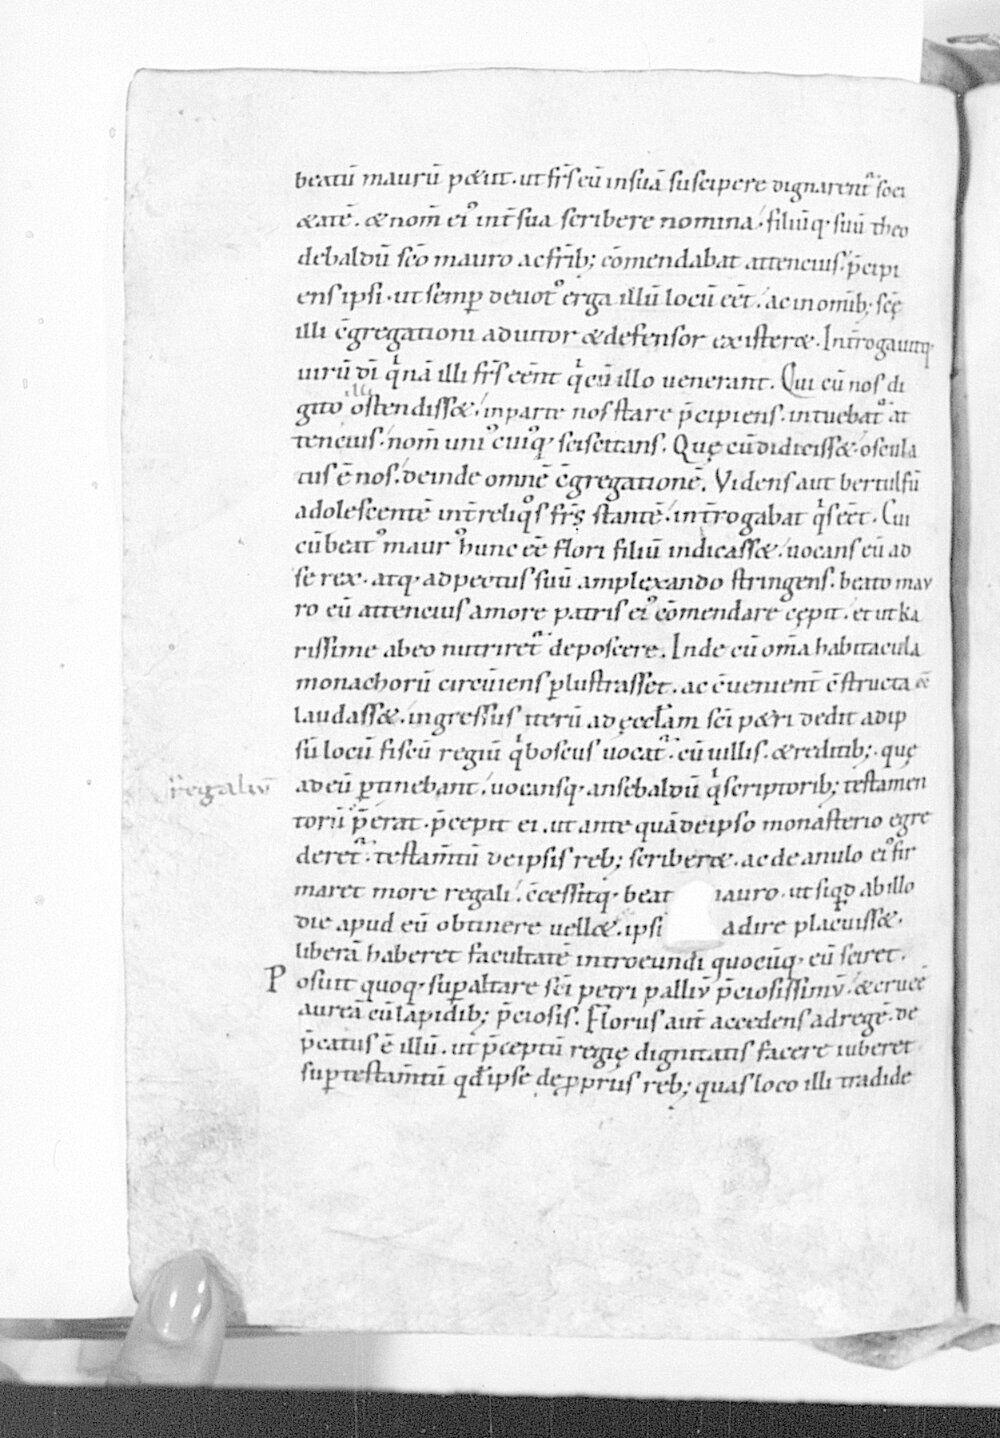 beatū maurū p&iit. ut fr̄s eū insuā suscipere dignarent᷑ soci
&atē. & nom̄ ei᷒ int̄ sua scribere nomina. filiūq; suū theo
debaldū sc̄o mauro ac fr̄ib; cōmendabat attencius. p̄cipi
ens ipsi. ut semꝑ deuot᷒ erga illū locū eēt. ac in om̄ib; sc̄ę
illi c̄gregationi adiutor & defensor exister&. Int̄rogauitq;
uirū dī qͥnā illi fr̄s eēnt qͥ cū illo uenerant. Cui cū nos di
gito illi ostendiss&. in parte nos stare p̄cipiens. intuebat᷑ at
tencius. nom̄ uni᷒ cui᷒q; sciscitans. Quę cū didiciss&. oscula
tus ē nos. deinde omnē c̄gregationē. Videns aut bertulfū
adolescentē int̄ reliqͦs fr̄s stantē. int̄rogabat qͥs eēt. Cui
cū beat᷒ maur᷒ hunc eē flori filiū indicass&. uocans eū ad
se rex. atq; ad pectus suū amplęxando stringens. beato mau
ro eū attencius amore patris ei᷒ cōmendare cępit. et ut ka
rissime ab eo nutriret᷑ deposcere. Inde cū om̄a habitacula
monachorū circūiens ꝑlustrasset. ac c̄uenient̄ c̄structa eē
laudass&. ingressus iterū ad ęccłam sc̄i p&ri dedit ad ip
sū locū fiscū regiū qͥ boscus uocat᷑. cū uillis. & reditib;. quę
ad eū ꝑtinebant. uocansq; ansebaldū qͥ scriptorib; testamen
regaliū
torū p̄erat. p̄cepit ei. ut ante quā de ipso monasterio egre
deret᷑. testam̄tū de ipsis reb; scriber&. ac de anulo ei᷒ fir
maret more regali. c̄cessitq; beat mauro. ut siqd ab illo
die apud eū obtinere uell&. ipsi adire placuiss&.
liberā haberet facultatē introeundi quocūq; eū sciret.
Posuit quoq; suꝑ altare sc̄i petri palliū p̄ciosissimū. & crucē
aureā cū lapidib; p̄ciosis. Florus aut̄ accedens ad regē. de
p̄catus ē illū. ut p̄ceptū regię dignitatis facere iuberet
suꝑ testam̄tū qđ ipse de ꝓpriis reb; quas loco illi tradide